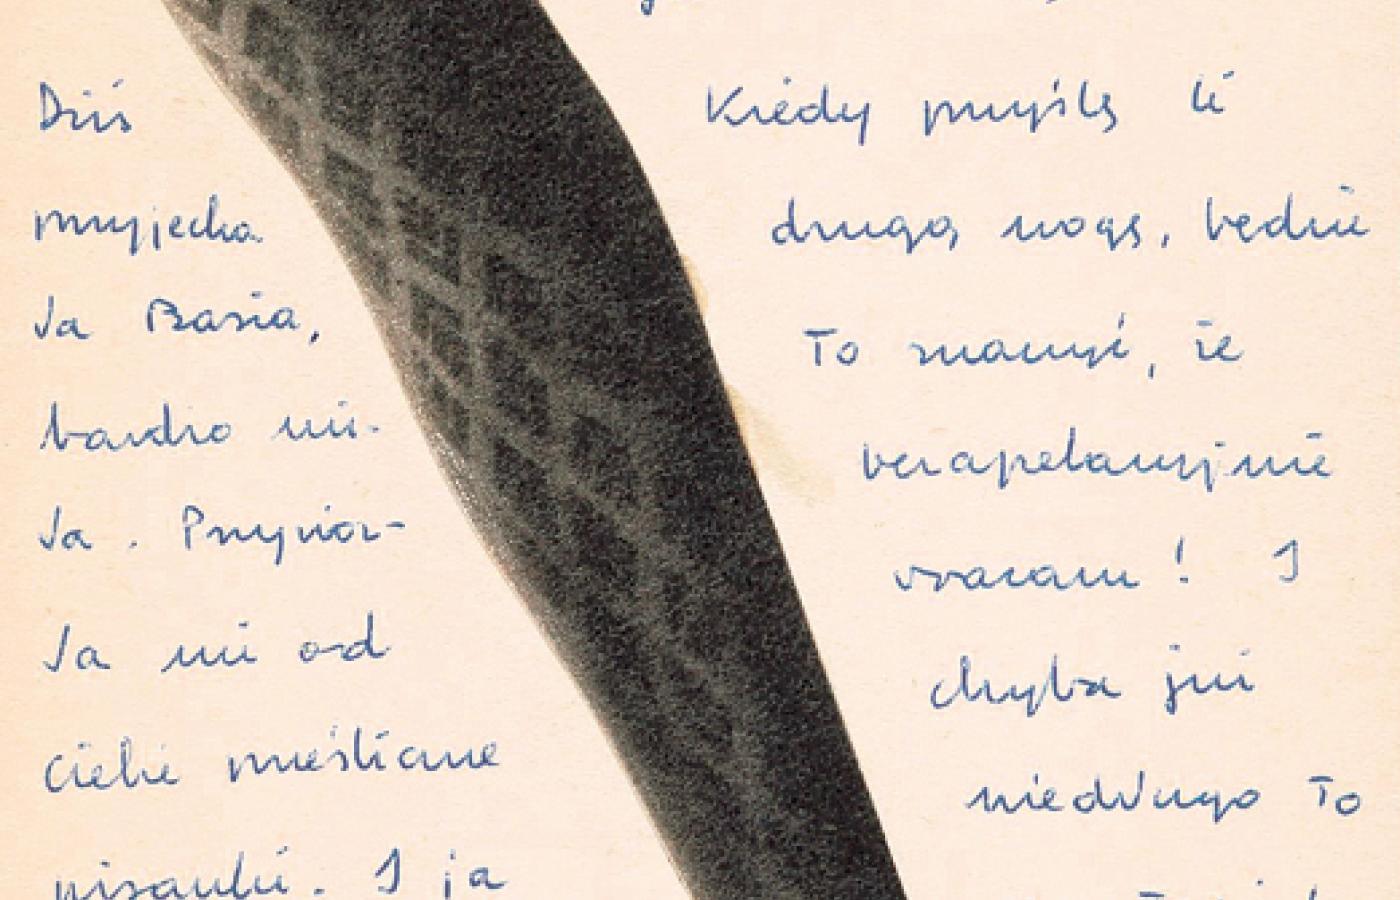 Dziś
przyjecha
ła Basia,
bardzo mi-
ła. Przywioz-
ła mi od
Ciebie prześliczne
pisanki. I ja
Kiedy przyślę Ci
drugą nogę, będzie
to znaczyć, że
bezapelacyjnie
wracam! I
chyba już
niedługo to